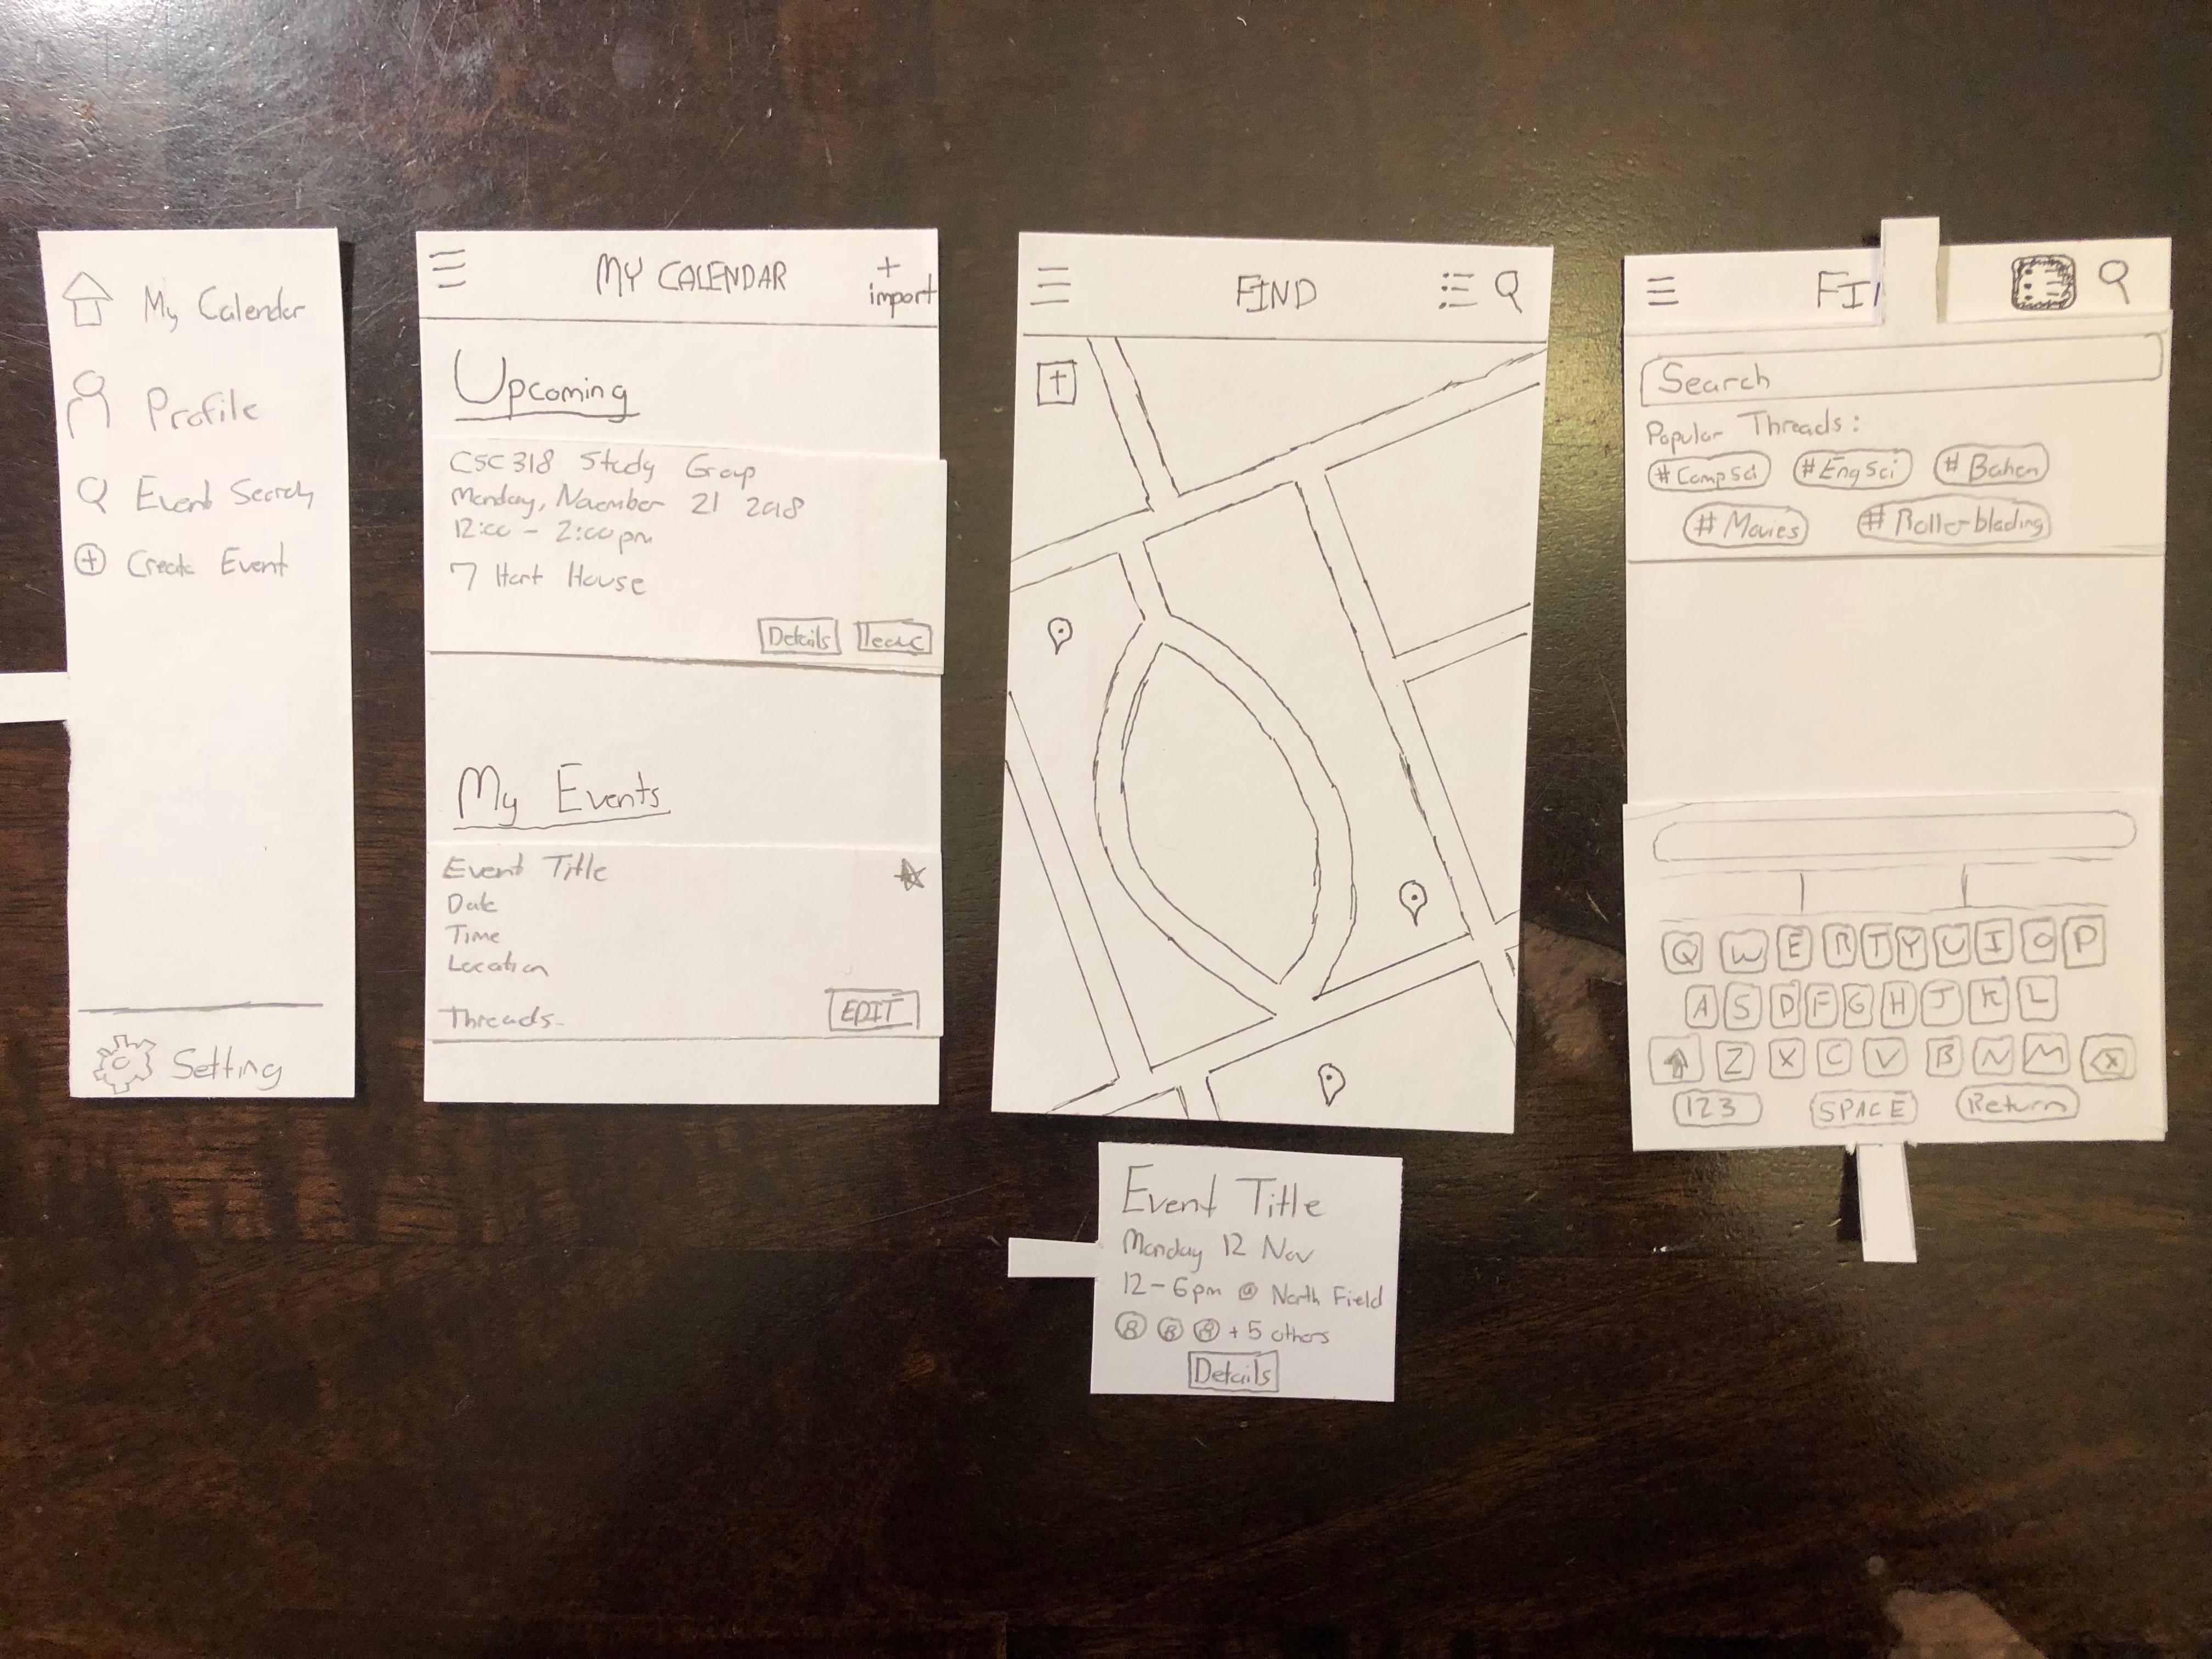 My Calendar
Profile
Event Search
Create Event
Setting
MY CALENDAR
+
import
Upcoming
CSC318 Study Group
Monday, November 21 2018
12:00 - 2:00pm
7 Hart House
Details
My Events
Event Title
Date
Time
Location
EDIT
Threads-
FIND
Event Title
Monday 12 Nov
12-6pm @ North Field
+5 others
Details
Search
Popular Threads:
#Compsci #Engsci #Bahen
#Movies #Rollerblading
Q W E R T Y U I O P
A S D F G H J K L
Z X C V B N M
123 SPACE Return